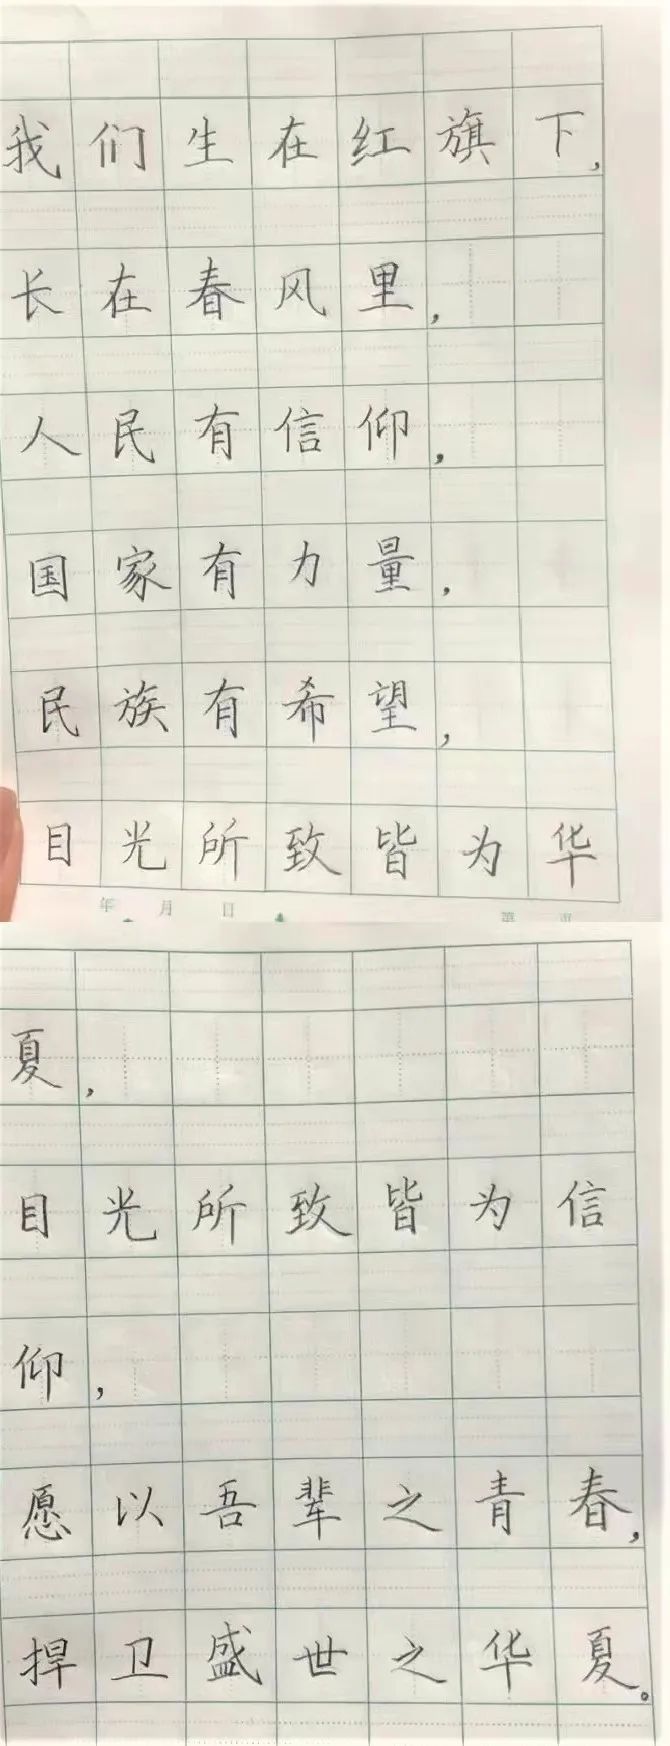 我们生在红旗下,
长在春风里,
人民有信仰,
国家有力量,
民族有希望,
目光所致皆为华
年 月 日 第 页
夏,
目光所致皆为信
仰,
愿以吾辈之青春,
捍卫盛世之华夏。